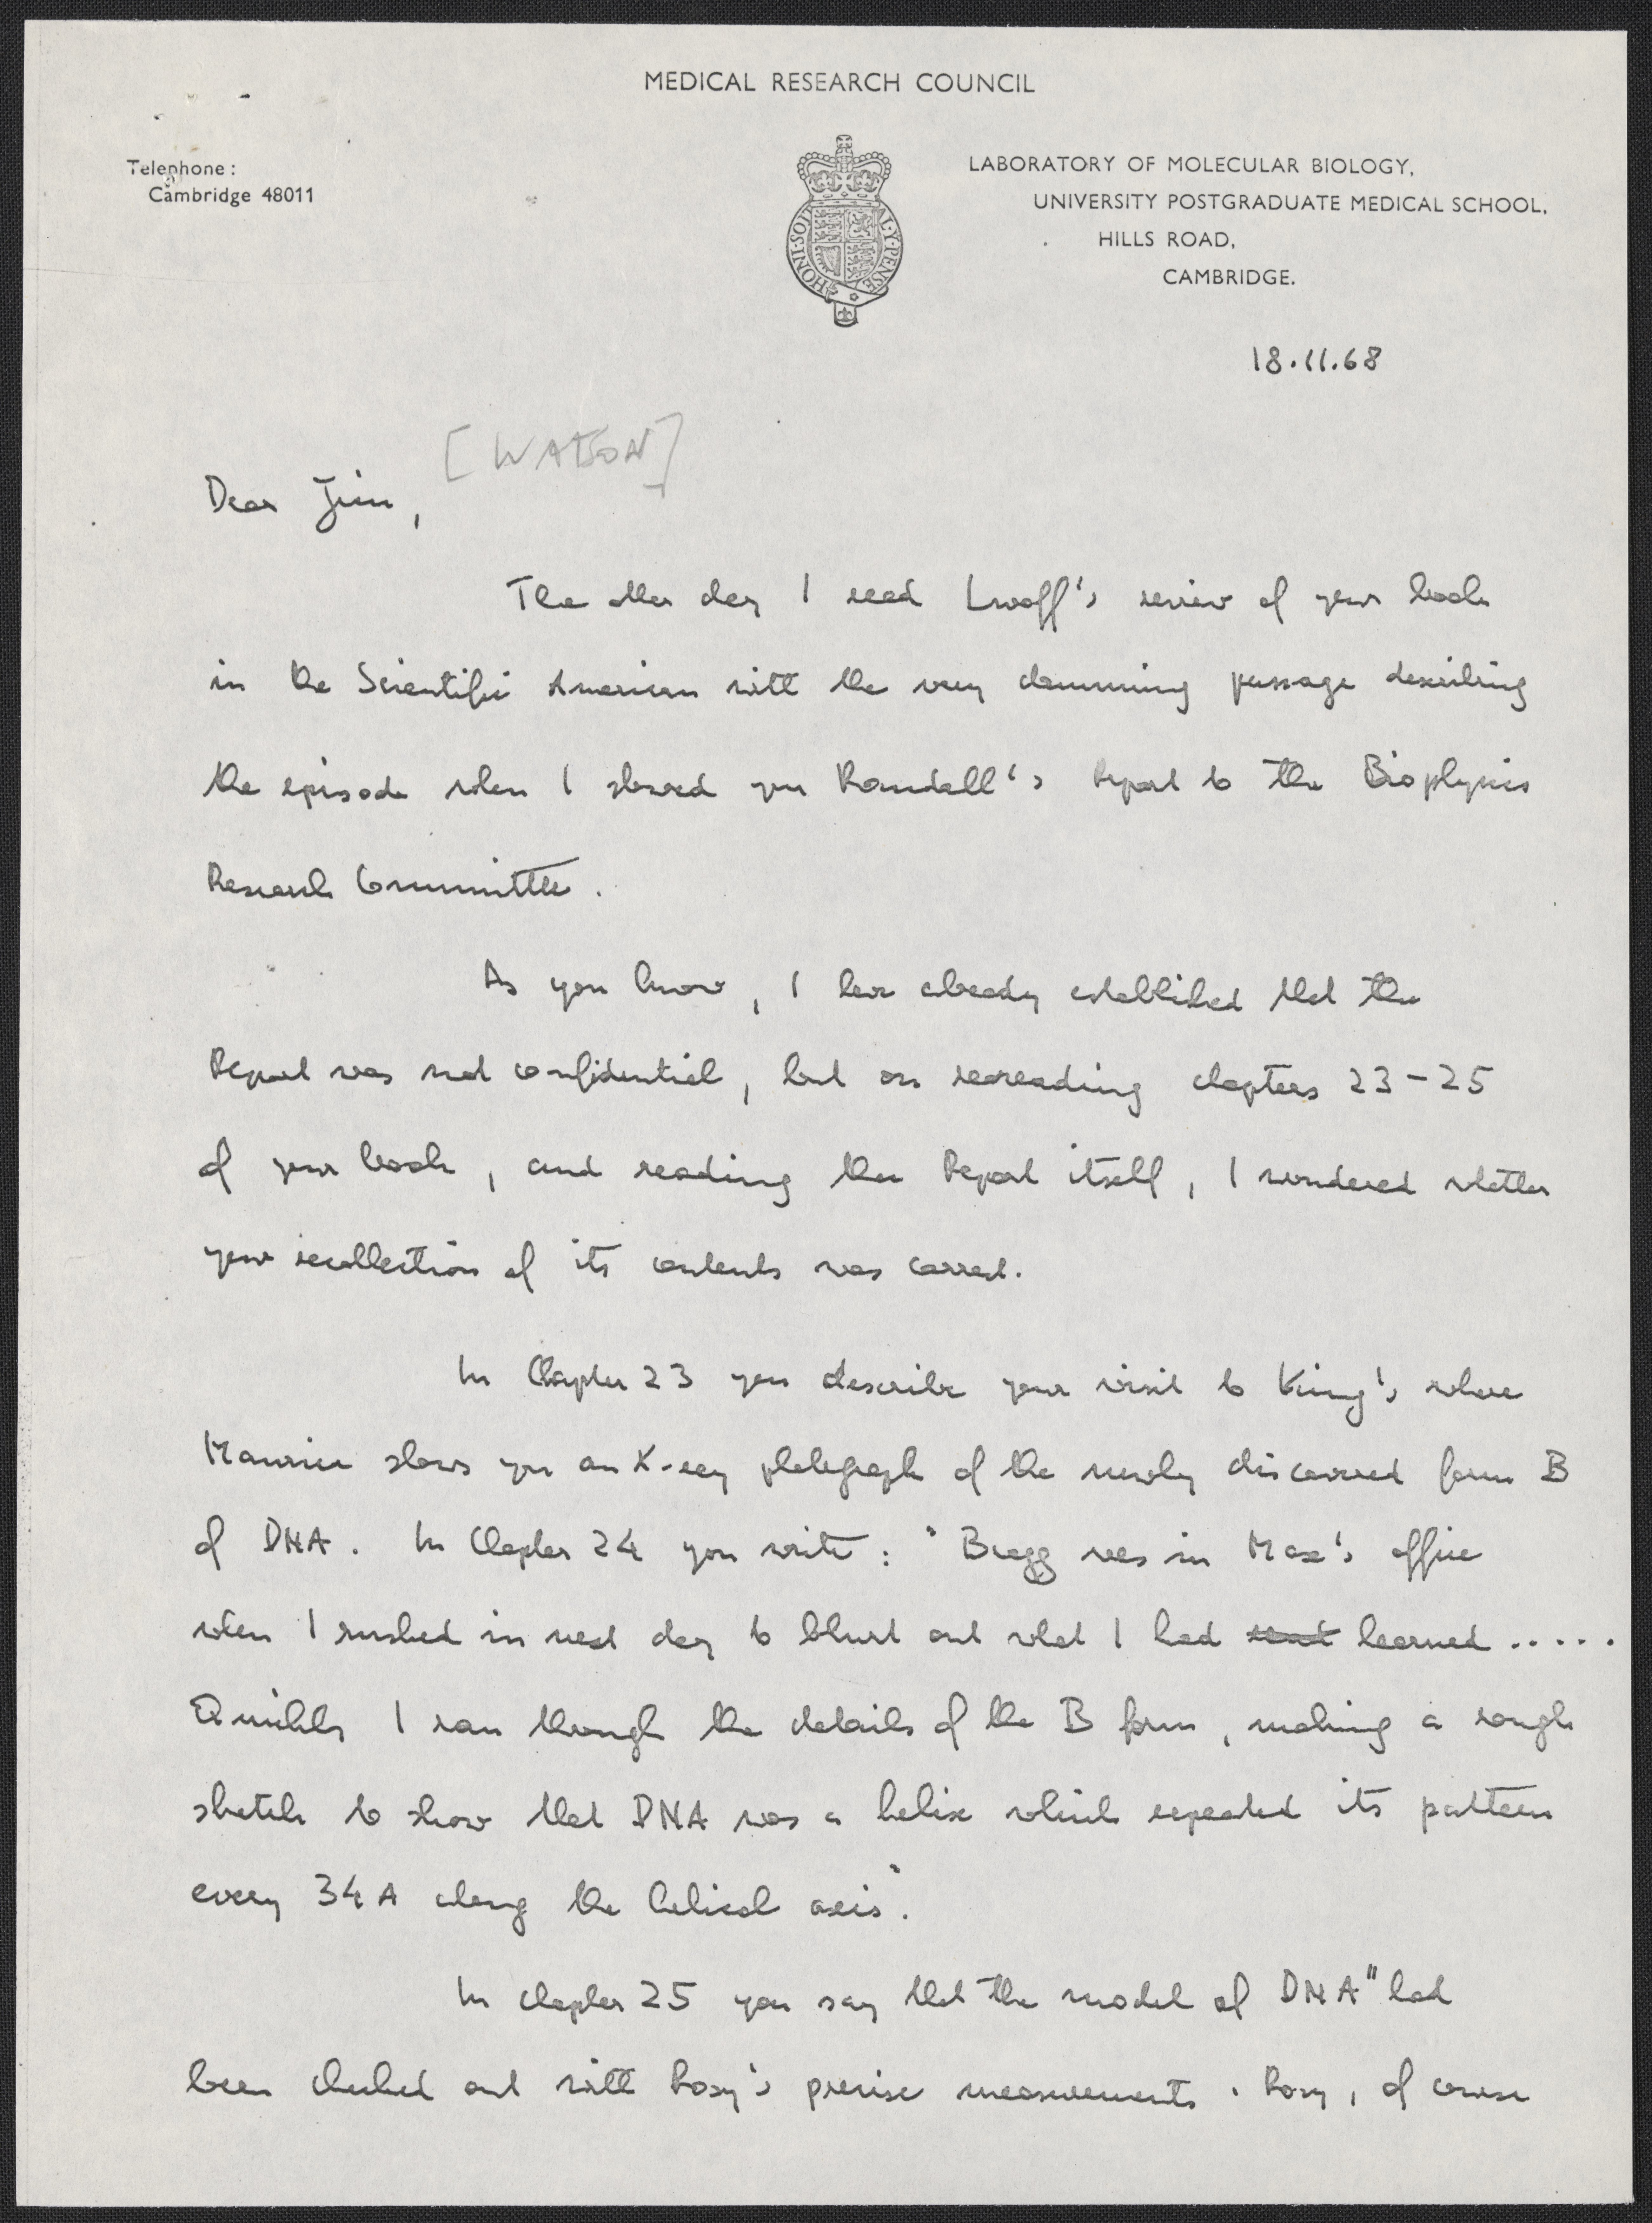 MEDICAL RESEARCH COUNCIL
Telephone :
Cambridge 48011
HONI·SOIT ALY·PENSE
LABORATORY OF MOLECULAR BIOLOGY,
UNIVERSITY POSTGRADUATE MEDICAL SCHOOL,
HILLS ROAD,
CAMBRIDGE.
18.11.68
[WATSON]
Dear Jim,
The other day I read Lwoff's review of your book
in the Scientific American with the very damning passage describing
the episode when I showed you Randall's Report to the Biophysics
Research Committee.
As you know, I have already established that the
Report was not confidential, but on rereading chapters 23-25
of your book, and reading the Report itself, I wondered whether
your recollection of its contents was correct.
In Chapter 23 you describe your visit to King's where
Maurice shows you an X-ray photograph of the newly discovered form B
of DNA. In Chapter 24 you write: "Bragg was in Max's office
when I rushed in next day to blurt out what I had learned .....
Quickly I ran through the details of the B form, making a rough
sketch to show that DNA was a helix which repeated its pattern
every 34 A along the helical axis".
In chapter 25 you say that the model of DNA "had
been checked out with Rosy's precise measurements. Rosy, of course